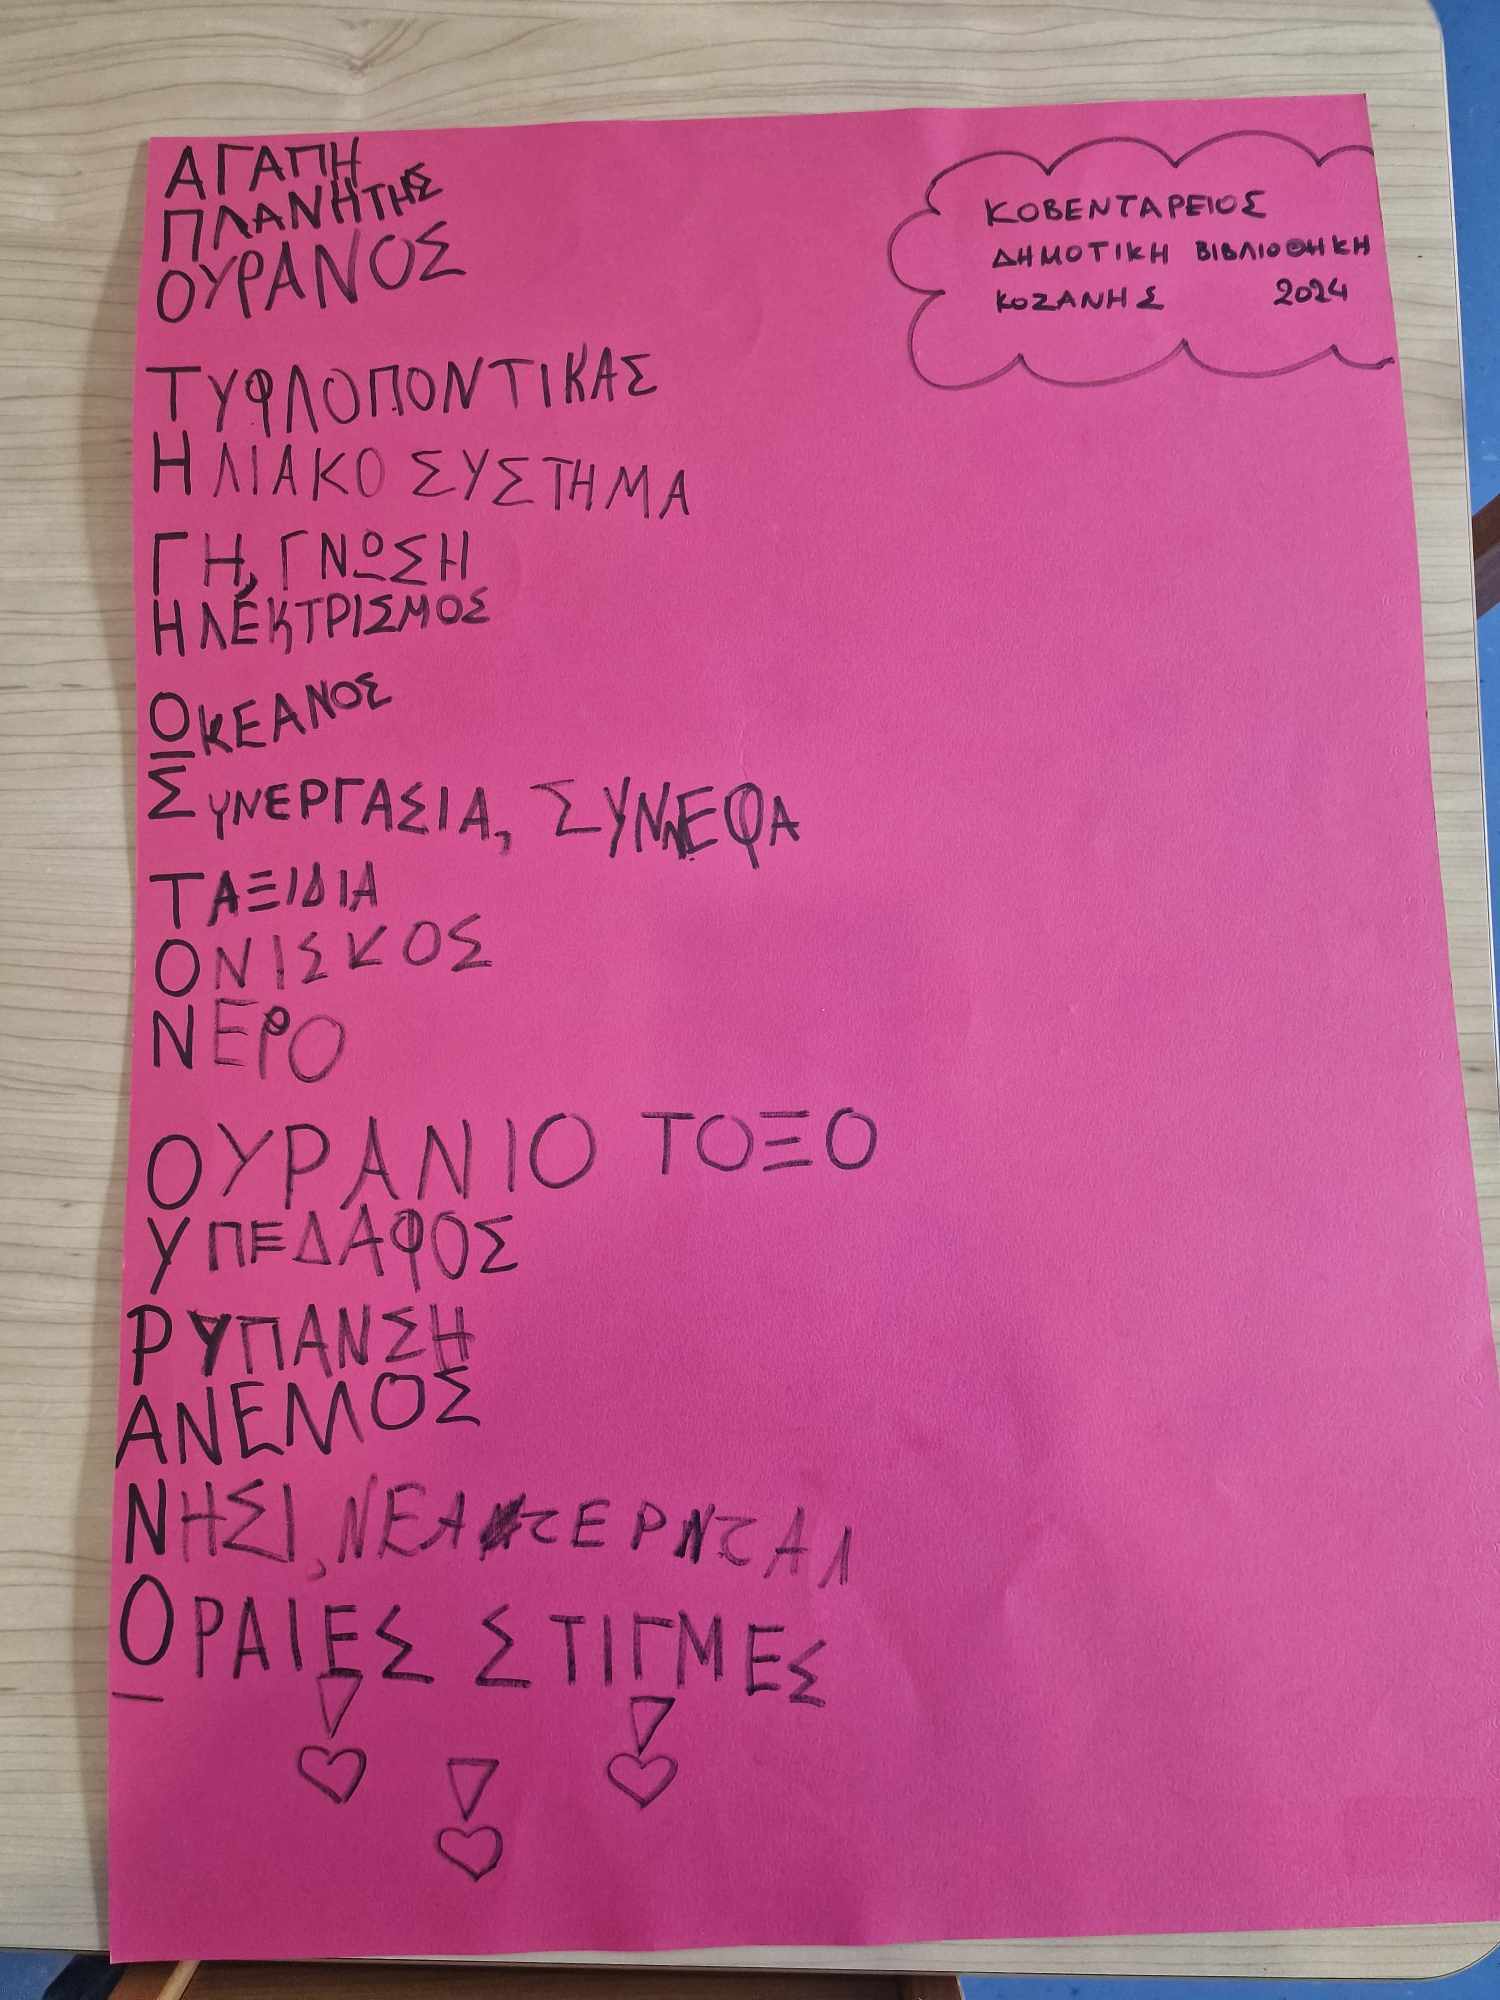 ΑΓΑΠΗ
ΠΛΑΝΗΤΗΣ
ΟΥΡΑΝΟΣ
ΚΟΒΕΝΤΑΡΕΙΟΣ
ΔΗΜΟΤΙΚΗ ΒΙΒΛΙΟΘΗΚΗ
ΚΟΖΑΝΗΣ 2024
ΤΥΦΛΟΠΟΝΤΙΚΑΣ
ΗΛΙΑΚΟ ΣΥΣΤΗΜΑ
ΓΗ, ΓΝΩΣΗ
ΗΛΕΚΤΡΙΣΜΟΣ
ΩΚΕΑΝΟΣ
ΣΥΝΕΡΓΑΣΙΑ, ΣΥΝΝΕΦΑ
ΤΑΞΙΔΙΑ
ΟΝΙΣΚΟΣ
ΝΕΡΟ
ΟΥΡΑΝΙΟ ΤΟΞΟ
ΥΠΕΔΑΦΟΣ
ΡΥΠΑΝΣΗ
ΑΝΕΜΟΣ
ΝΗΣΙ, ΝΕΑΤΕΡΝΤΑΛ
ΩΡΑΙΕΣ ΣΤΙΓΜΕΣ